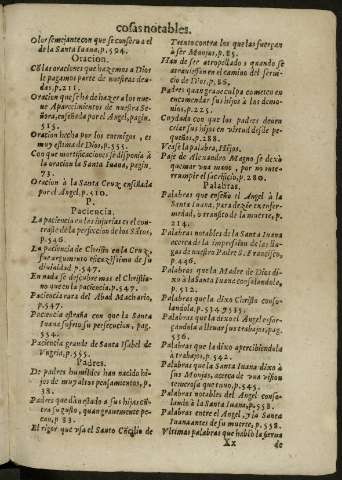 cosas notables.
Olor semejante con que se conserua el
de la Santa Iuana, p. 594.
Oracion.
Cō las oraciones que hazemos a Dios
le pagamos parte de nuestras deu-
das, p. 211.
Oracion que se ha de hazer a las nue
ue Aparecimientos de nuestra Se-
ñora, enseñada por el Angel, pagin.
515.
Oracion hecha por los enemigos, es
muy estima de Dios, p. 555.
Con que mortificaciones se disponia à
la oracion la Santa Iuana, pagin.
73.
Oracion à la Santa Cruz, enseñada
por el Angel, p. 510.
P.
Paciencia.
La paciencia en las injurias es el con-
traste de la perfeccion de los Sātos,
p. 546.
La paciencia de Christo en la Cruz,
fue argumento eficacissimo de su
diuinidad, p. 547.
En nada se descubre mas el Christia-
no que en la paciencia, p. 547.
Paciencia rara del Abad Machario,
p. 547.
Paciencia estraña con que la Santa
Iuana sufrio su persecucion, pag.
354.
Paciencia grande de Santa Isabel de
Vngria, p. 555.
Padres.
De padres humildes han nacido hi-
jos de muy altos pensamientos, p.
38.
Padres que dan estado a sus hijos cō-
tra su gusto, quan grauemente pe-
can, p. 83.
El rigor que vsa el Santo Cōcilio de
Trento contra los que las fuerçan
à ser Monjas, p. 85.
Han de ser atropellados quando se
atrauiessan en el camino del serui-
cio de Dios, p. 86.
Padres quan graue culpa cometen en
encomendar sus hijos à los demo-
nios, p. 225.
Cuydado con que los padres deuen
criar sus hijos en virtud desde pe-
queños, p. 288.
Vease la palabra, Hijos.
Paje de Alexandro Magno se dexò
quemar vna mano, por no inte-
rrumpir el sacrificio, p. 280.
Palabras.
Palabras que enseño el Angel à la
Santa Iuana, para dezir en enfer-
medad, ò transito de la muerte, p.
214.
Palabras notables de la Santa Iuana
acerca de la impression de las lla-
gas de nuestro Padre S. Francisco,
p. 436.
Palabras que la Madre de Dios di-
xo à la Santa Iuana consolandola,
p. 512.
Palabras que la dixo Christo conso-
landola, p. 514. y 523.
Palabras que la dixo el Angel esfor-
çandola a lleuar sus trabajos, pag.
536.
Palabras que la dixo apercibiendola
à trabajos, p. 542.
Palabras que la Santa Iuana dixo à
sus Monjas, acerca de vna vision
temerosa que tuuo, p. 545.
Palabras notables del Angel conso-
lando à la Santa Iuana, p. 558.
Palabras entre el Angel, y la Santa
Iuana antes de su muerte, p. 558.
Vltimas palabras que hablò la sierua
Xx
de